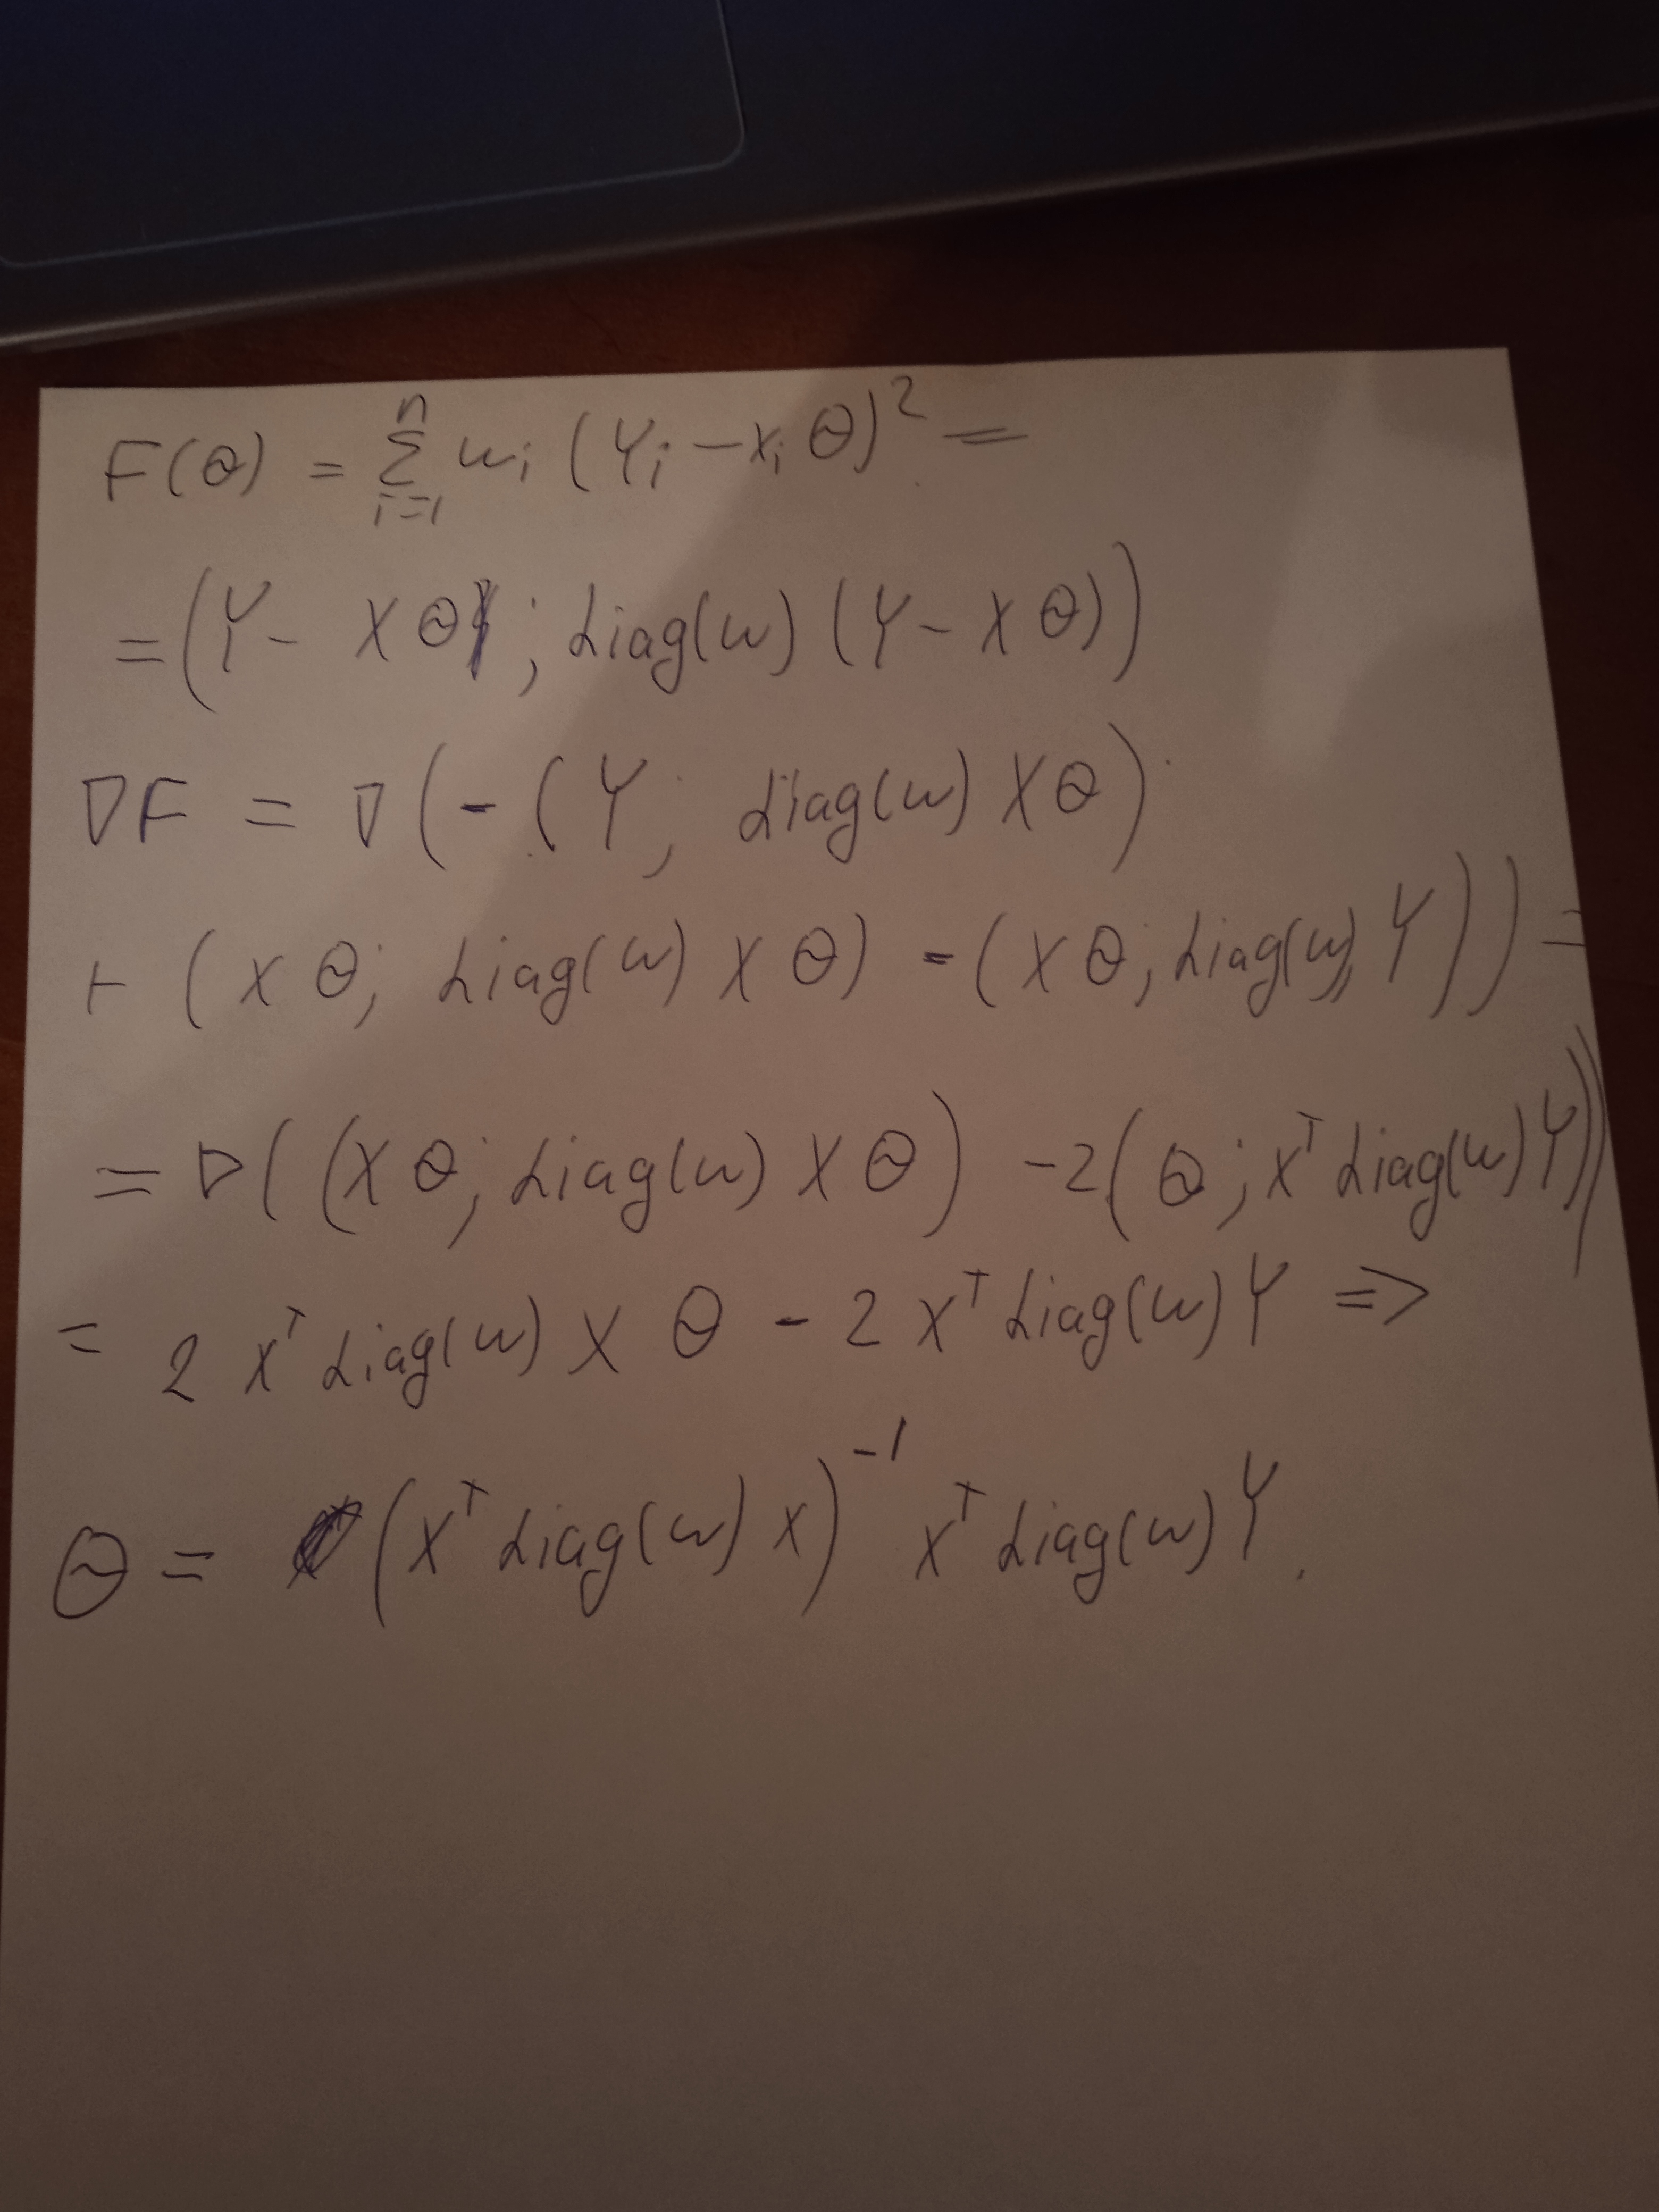 F(θ) = Σ_{i=1}^{n} w_i (Y_i - x_i θ)^2 =
= (Y - Xθ ; diag(w) (Y - Xθ))
∇F = ∇(-(Y; diag(w) Xθ)
+ (Xθ; diag(w) Xθ) - (Xθ; diag(w) Y)) =
= ∇((Xθ; diag(w) Xθ) - 2(θ; X^T diag(w) Y))
= 2 X^T diag(w) X θ - 2 X^T diag(w) Y ⇒
θ = (X^T diag(w) X)^{-1} X^T diag(w) Y.